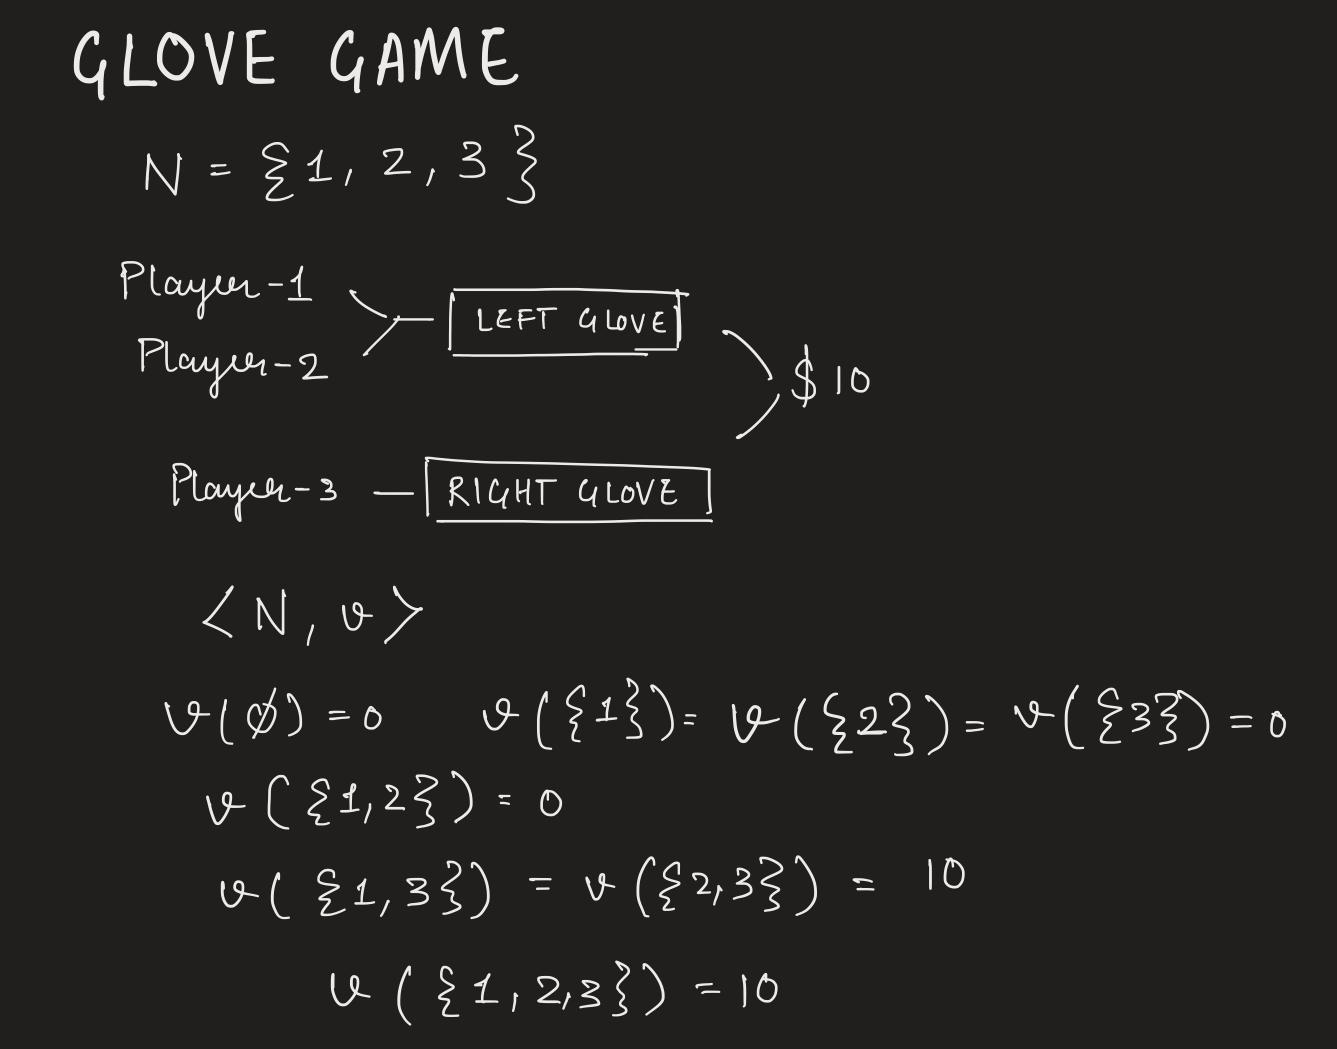 GLOVE GAME
N = {1, 2, 3}
Player-1
LEFT GLOVE
Player-2
$10
Player-3 — RIGHT GLOVE
<N, v>
v(∅) = 0 v({1}) = v({2}) = v({3}) = 0
v({1,2}) = 0
v({1,3}) = v({2,3}) = 10
v({1,2,3}) = 10